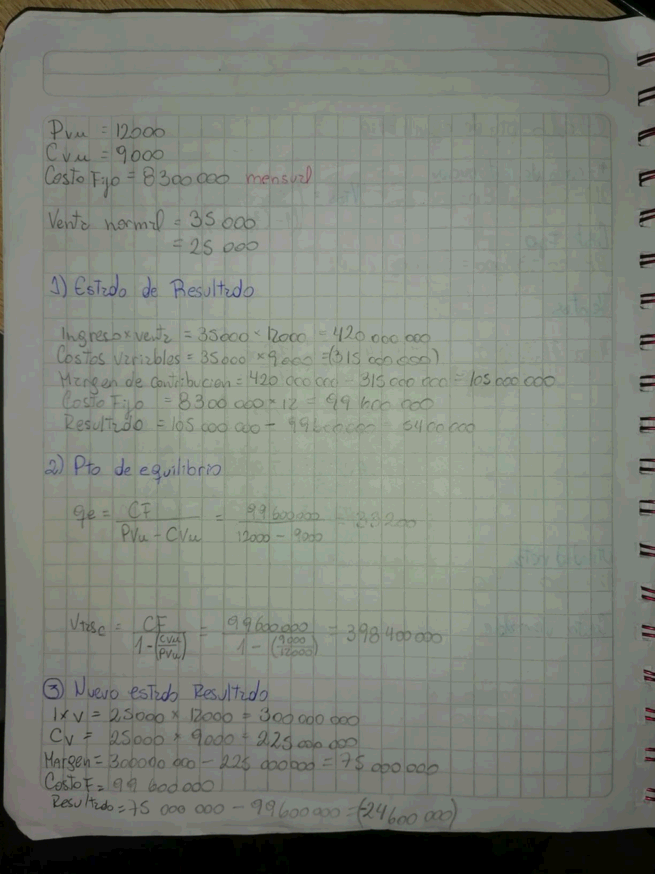 Pvu = 12000
Cvu = 9000
Costo Fijo = 8300000 mensual
Venta normal = 35000
= 25000
1) Estado de Resultado
Ingreso x venta = 35000 x 12000 = 420 000 000
Costos variables = 35000 x 9000 = (315 000 000)
Margen de contribucion = 420 000 000 - 315 000 000 = 105 000 000
Costo Fijo = 8300 000 x 12 = 99 600 000
Resultado = 105 000 000 - 99600000 5400000
2) Pto de equilibrio
qe = CF / PVu - CVu = 99600000 / 12000 - 9000 = 33200
Vrsc = CF / 1 - (CVu / PVu) = 99600000 / 1 - (9000 / 12000) = 398 400 000
3 Nuevo estado Resultado
I x V = 25000 x 12000 = 300 000 000
CV = 25000 x 9000 = 225 000 000
Margen = 300000 000 - 225 000000 = 75 000 000
Costo F = 99 600000
Resultado = 75 000 000 - 99600000 = (24600 000)